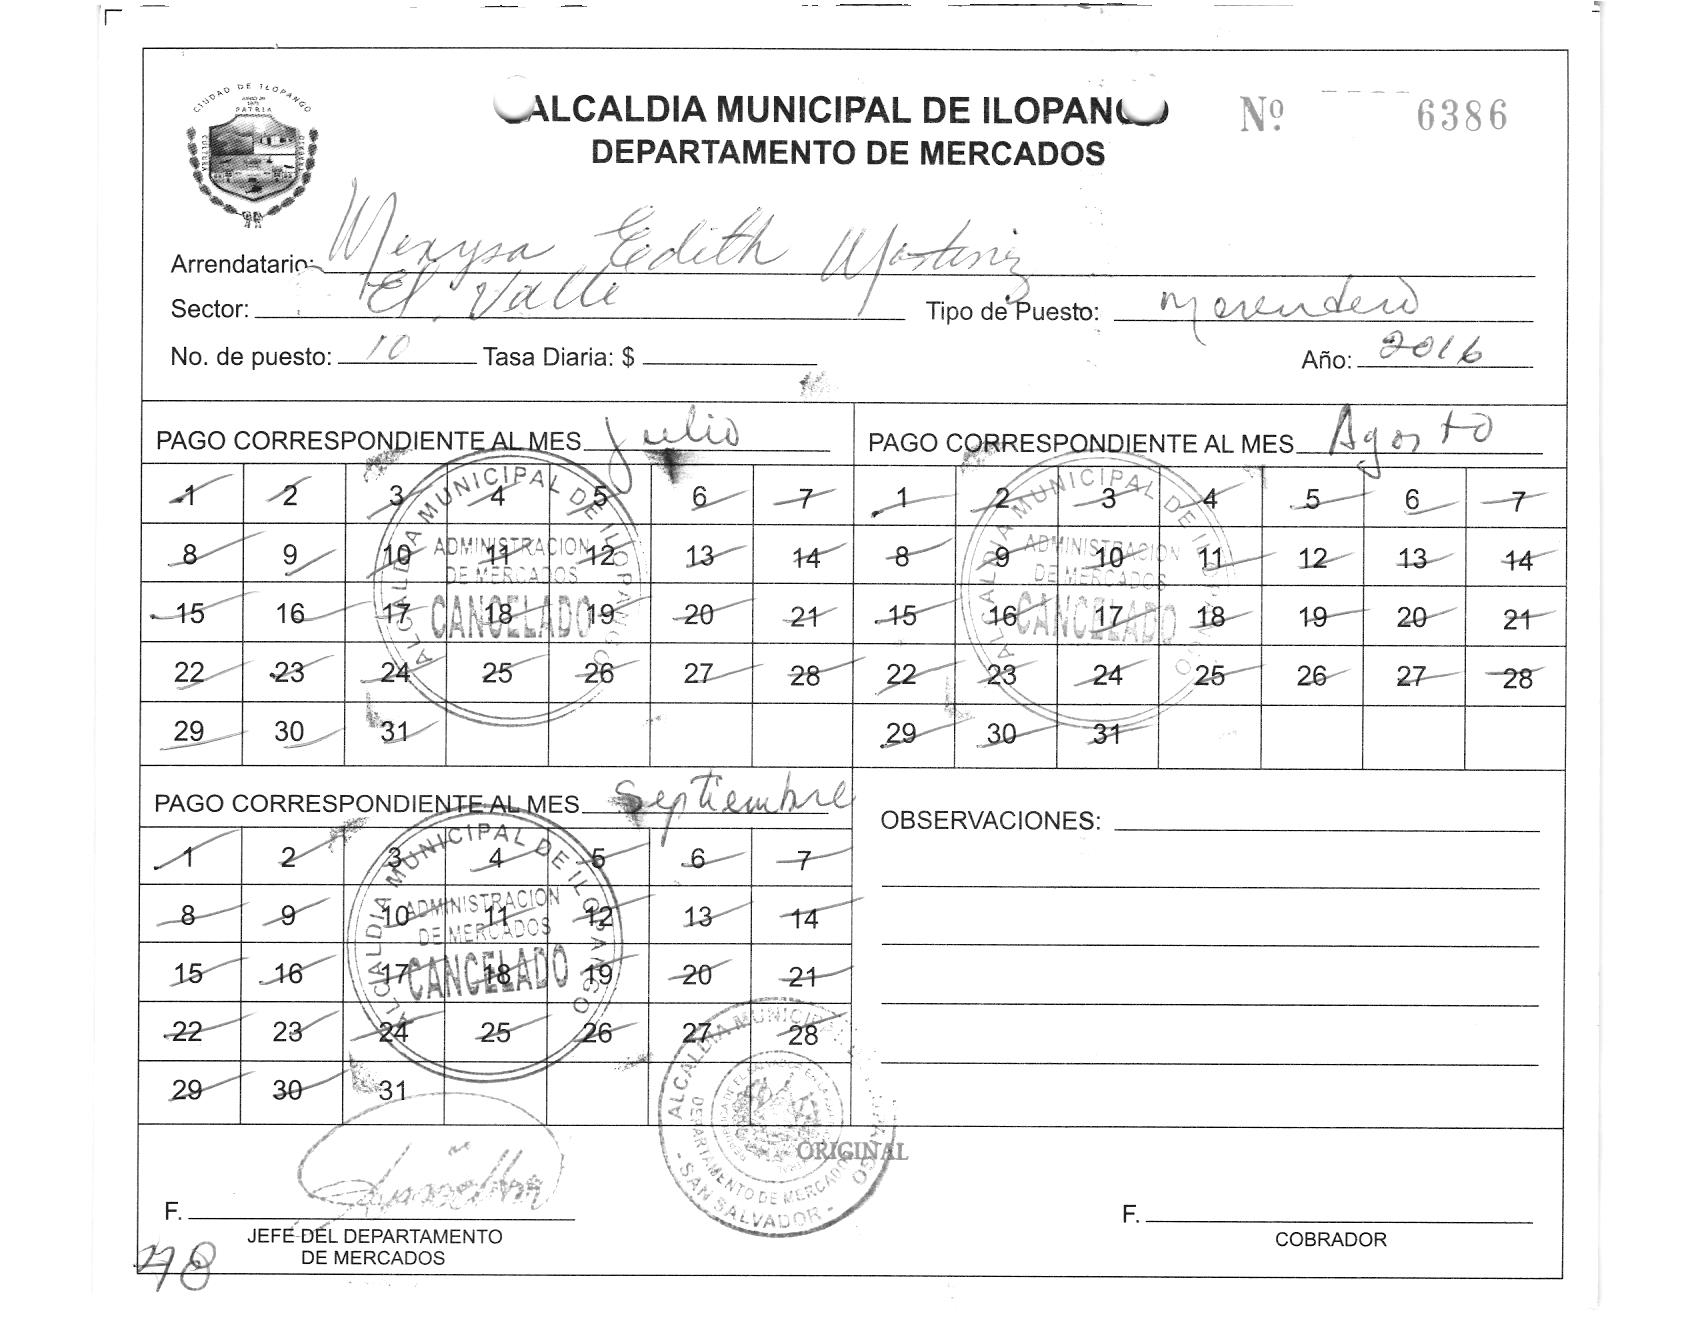 CIUDAD DE ILOPANGO
PATRIA
ALCALDIA MUNICIPAL DE ILOPANGO
DEPARTAMENTO DE MERCADOS
Nº 6386
Arrendatario: Edith Martinez
Sector: El Valle Tipo de Puesto: Merendero
No. de puesto: 10 Tasa Diaria: $ Año: 2016
PAGO CORRESPONDIENTE AL MES Julio
1 2 3 4 5 6 7
8 9 10 11 12 13 14
15 16 17 18 19 20 21
22 23 24 25 26 27 28
29 30 31
ALCALDIA MUNICIPAL DE ILOPANGO
ADMINISTRACION
DE MERCADOS
CANCELADO
PAGO CORRESPONDIENTE AL MES Agosto
1 2 3 4 5 6 7
8 9 10 11 12 13 14
15 16 17 18 19 20 21
22 23 24 25 26 27 28
29 30 31
ALCALDIA MUNICIPAL DE ILOPANGO
ADMINISTRACION
DE MERCADOS
CANCELADO
PAGO CORRESPONDIENTE AL MES Septiembre
1 2 3 4 5 6 7
8 9 10 11 12 13 14
15 16 17 18 19 20 21
22 23 24 25 26 27 28
29 30 31
ALCALDIA MUNICIPAL DE ILOPANGO
ADMINISTRACION
DE MERCADOS
CANCELADO
OBSERVACIONES:
ALCALDIA MUNICIPAL DE ILOPANGO
DEPARTAMENTO DE MERCADOS
- SAN SALVADOR -
ORIGINAL
F.
JEFE DEL DEPARTAMENTO
DE MERCADOS
F.
COBRADOR
78